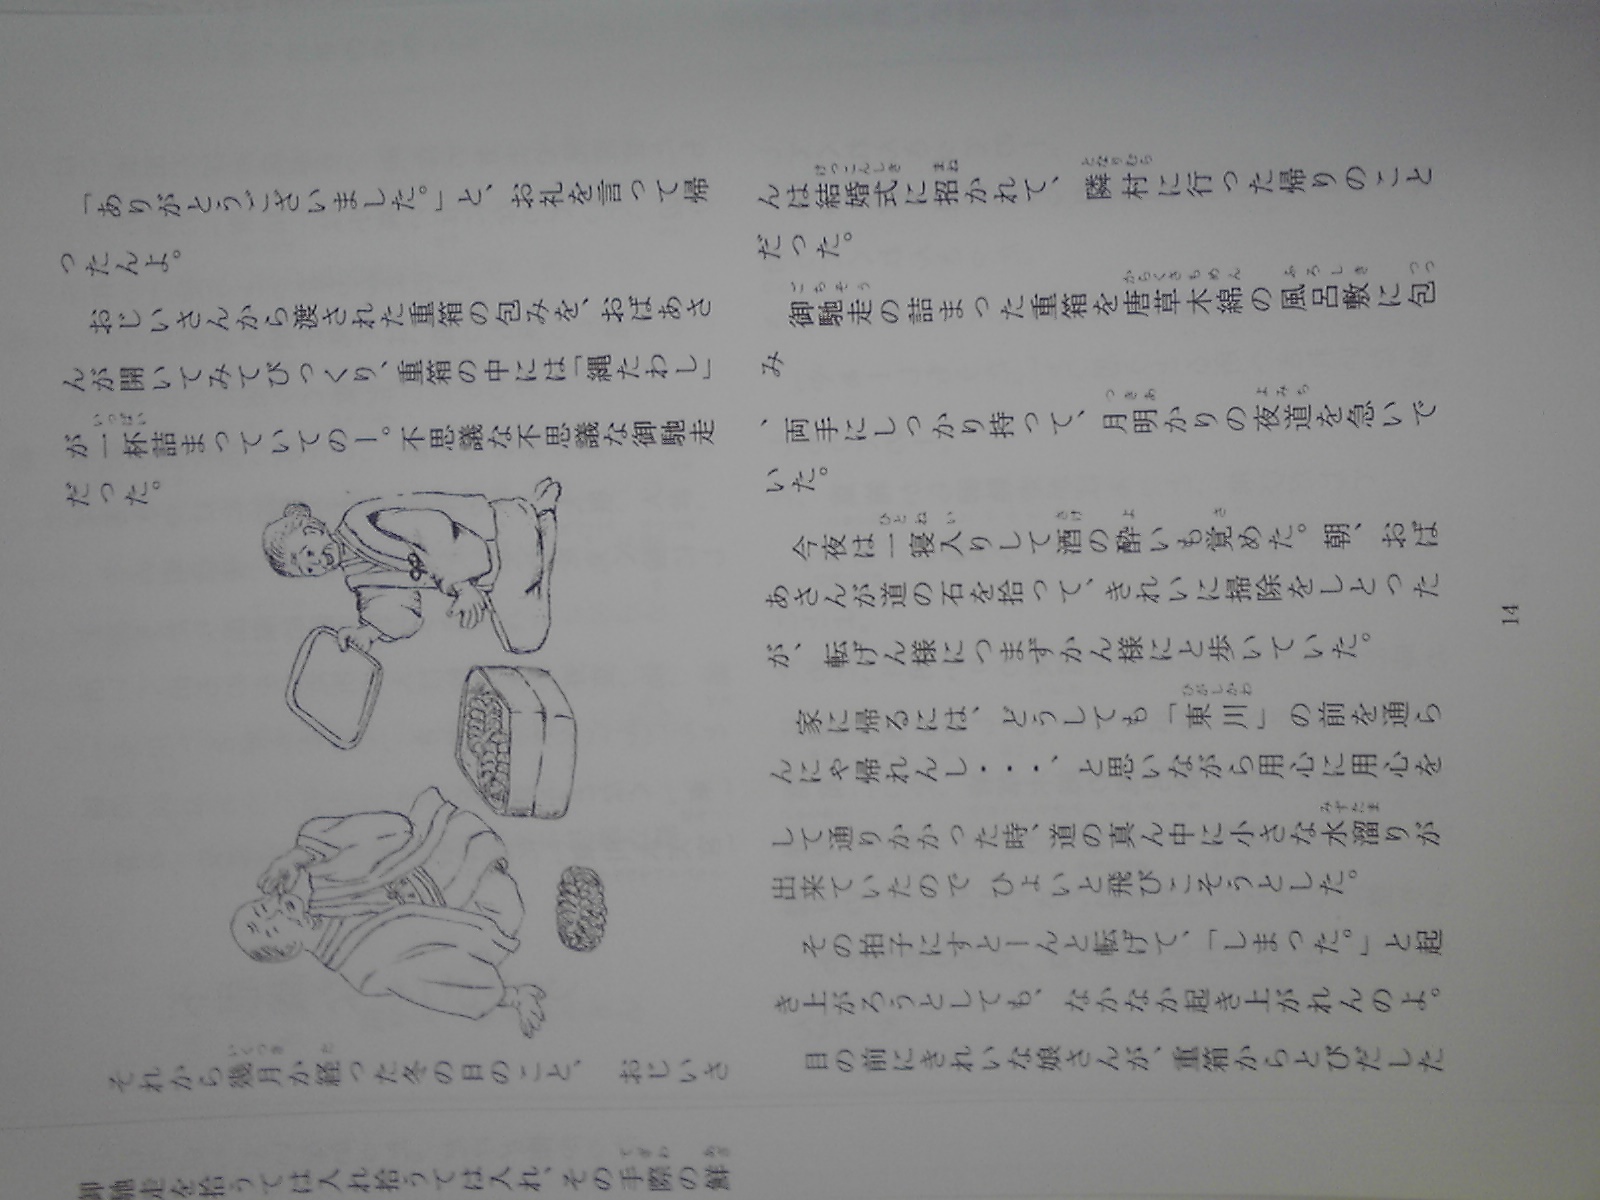 「ありがとうございました。」と、お礼を言って帰
ったんよ。
おじいさんから渡された重箱の包みを、おばあさ
んが開いてみてびっくり、重箱の中には「縄たわし」
が一杯詰まっていてのー。不思議な不思議な御馳走
だった。
それから幾月か経った冬の日のこと、 おじいさ
んは結婚式に招かれて、隣村に行った帰りのこと
だった。
御馳走の詰まった重箱を唐草木綿の風呂敷に包
み
、両手にしっかり持って、月明かりの夜道を急いで
いた。
今夜は一寝入りして酒の酔いも覚めた。朝、おば
あさんが道の石を拾って、きれいに掃除をしとった
が、転げん様につまずかん様にと歩いていた。
家に帰るには、どうしても「東川」の前を通ら
んにや帰れんし・・・、と思いながら用心に用心を
して通りかかった時、道の真ん中に小さな水溜りが
出来ていたので ひょいと飛びこそうとした。
その拍子にすとーんと転げて、「しまった。」と起
き上がろうとしても、なかなか起き上がれんのよ。
目の前にきれいな娘さんが、重箱からとびだした
14
御馳走を拾うては入れ拾うては入れ、その手際の鮮